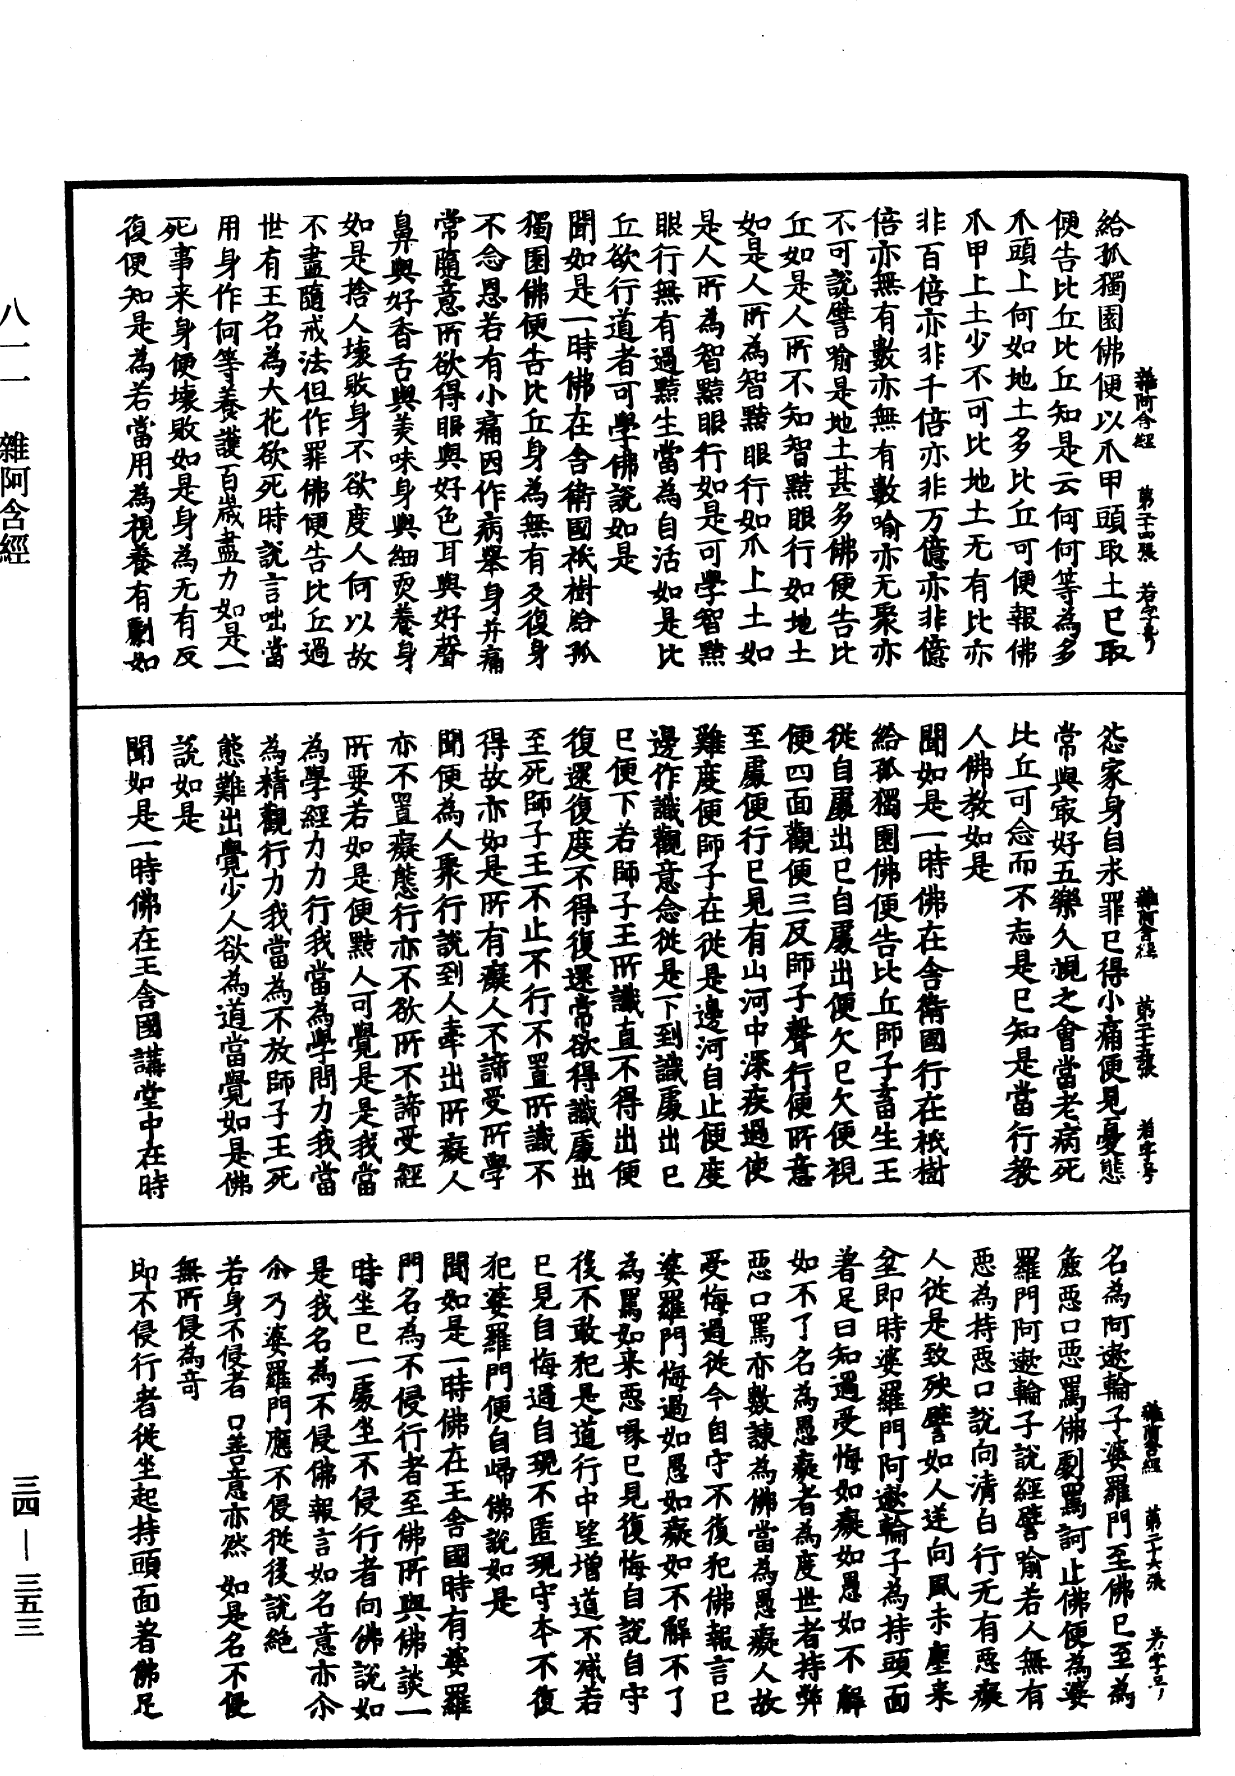 給孤獨園佛便以爪甲頭取土已取
便告比丘比丘知是云何何等為多
爪頭上何如地土多比丘可便報佛
爪甲上土少不可比地土无有比亦
非百倍亦非千倍亦非万億亦非億
倍亦無有數亦無有數喻亦无聚亦
不可說譬喻是地土甚多佛便告比
丘如是人所不知智黠眼行如地土
如是人所為智黠眼行如爪上土如
是人所為智黠眼行如是可學智黠
眼行無有過黠生當為自活如是比
丘欲行道者可學佛說如是
聞如是一時佛在舍衛國祇樹給孤
獨園佛便告比丘身為無有反復身
不念恩若有小痛因作病舉身并痛
常隨意所欲得眼與好色耳與好聲
鼻與好香舌與美味身與細耎養身
如是捨人壞敗身不欲度人何以故
不盡隨戒法但作罪佛便告比丘過
世有王名為大花欲死時說言咄當
用身作何等養護百歲盡力如是一
死事来身便壞敗如是身為无有反
復便知是為若當用為視養有劇如
惌家身自求罪已得小痛便見憂態
常與㝡好五樂久視之會當老病死
比丘可念而不忘是已知是當行教
人佛教如是
聞如是一時佛在舍衛國行在祇樹
給孤獨園佛便告比丘師子畜生王
從自處出已自處出便欠已欠便視
便四面觀便三反師子聲行便所意
至處便行已見有山河中深疾過使
難度便師子在從是邊河自止便度
邊作識觀意念從是下到識處出已
已便下若師子王所識直不得出便
復還復度不得復還常欲得識處出
至死師子王不止不行不置所識不
得故亦如是所有癡人不諦受所學
聞便為人聚行說到人牽出所癡人
亦不置癡態行亦不欲所不諦受經
所要若如是便黠人可覺是是我當
為學經力力行我當為學問力我當
為精觀行力我當為不放師子王死
態難出覺少人欲為道當覺如是佛
說如是
聞如是一時佛在王舍國講堂中在時
名為阿遬輪子婆羅門至佛已至為
麁惡口惡罵佛劇罵訶止佛便為婆
羅門阿遬輪子說經譬喻若人無有
惡為持惡口說向清白行无有惡癡
人從是致殃譬如人逆向風末塵来
坌即時婆羅門阿遬輪子為持頭面
著足曰知過受悔如癡如愚如不解
如不了名為愚癡者為度世者持弊
惡口罵亦數諫為佛當為愚癡人故
受悔過從今自守不復犯佛報言已
婆羅門悔過如愚如癡如不解不了
為罵如来惡喙已見復悔自說自守
後不敢犯是道行中望增道不減若
已見自悔過自現不匿現守本不復
犯婆羅門便自歸佛說如是
聞如是一時佛在王舍國時有婆羅
門名為不侵行者至佛所與佛談一
時坐已一處坐不侵行者向佛說如
是我名為不侵佛報言如名意亦尒
尒乃婆羅門應不侵從後說絕
若身不侵者 口善意亦然 如是名不侵
無所侵為奇
即不侵行者從坐起持頭面著佛足
雜阿含經 第二十四張 若字号
雜阿含經 第二十五張 若字号
雜阿含經 第二十六張 若字号
八一一 雜阿含經
三四—三五三